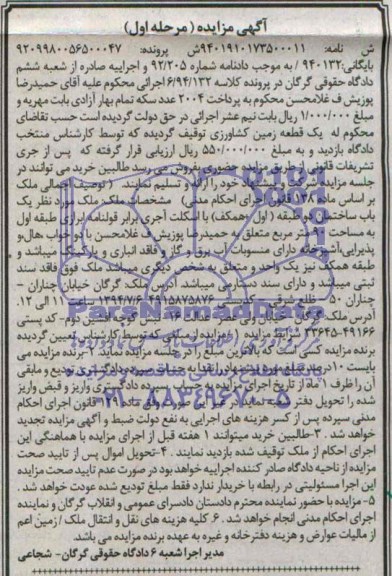 آگهی مزایده (مرحله اول)
ش نامه: ۹۴۰۱۹۱۰۱۷۳۵۰۰۰۱۱ ش پرونده: ۹۲۰۹۹۸۰۰۵۶۵۰۰۰۴۷
بایگانی: ۹۴۰۱۳۲ / به موجب دادنامه شماره ۹۲/۲۰۵ و اجراییه صادره از شعبه ششم
دادگاه حقوقی گرگان در پرونده کلاسه ۶/۹۴/۱۳۲ اجرائی محکوم علیه آقای حمیدرضا
پوزیش ف غلامحسن محکوم به پرداخت ۲۰۰۴ عدد سکه تمام بهار آزادی بابت مهریه و
مبلغ ۱/۰۰۰/۰۰۰ ریال بابت نیم عشر اجرائی در حق دولت گردیده است حسب تقاضای
محکوم له یک قطعه زمین کشاورزی توقیف گردیده که توسط کارشناس منتخب
دادگاه بازدید و به مبلغ ۵۵۰/۰۰۰/۰۰۰ ریال ارزیابی قرار گرفته که پس از جری
تشریفات قانونی از طریق مزایده حضوری بفروش می رسد طالبین خرید می توانند در
جلسه مزایده شرکت و پیشنهاد خود را ارائه و تسلیم نمایند ( توصیف اجمالی ملک
بر اساس ماده ۱۳۸ قانون اجرای احکام مدنی) مشخصات ملک: ملک مورد نظر یک
باب ساختمان دو طبقه ( اول +همکف) با اسکلت آجری برابر قولنامه ابرازی طبقه اول
به مساحت ۹۰ متر مربع متعلق به حمیدرضا پوزیش ف غلامحسن با دو خواب هال و
پذیرایی، آشپزخانه دارای منصوبات آب برق و گاز و فاقد انباری و پارکینگ میباشد و
طبقه همکف نیز یک واحد و متعلق به شخص دیگری میباشد ملک فوق فاقد سند
ثبتی میباشد و دارای سند دستدارمی میباشد. آدرس ملک: گرگان خیابان چناران -
چناران ۵۰ ضلع شرقی - کدپستی ۴۹۱۵۸۷۵۸۷۶ ۱۳۹۴/۷/۶ ساعت ۱۱ الی ۱۲.
۴۹۱۶۶-۳۳۶۴۵ شرایط مزایده: ۱- مزایده از مبلغی که توسط کارشناس تعیین گردیده
برنده مزایده کسی است که بالاترین مبلغ را در جلسه مزایده نماید. ۲- برنده مزایده می
بایست ۱۰ درصد مبلغ مزایده را نقدا به حساب سپرده دادگستری تودیع و مابقی
آن را ظرف ۱ ماه از تاریخ اجرای مزایده به حساب سپرده دادگستری واریز و قبض واریز
شده را تحویل دفتر شعبه نماید در غیر این صورت وفق ماده ۱۲۹ قانون اجرای احکام
مدنی سپرده پس از کسر هزینه های اجرایی به نفع دولت ضبط و آگهی مزایده تجدید
خواهد شد . ۳-طالبین خرید میتوانند ۱ هفته قبل از اجرای مزایده با هماهنگی این
اجرای احکام از ملک توقیف شده بازدید نمایند. ۴-تحویل اموال پس از تایید صحت
مزایده از ناحیه دادگاه صادر کننده اجراییه خواهد بود در صورت عدم تایید صحت مزایده
این اجرا مسئولیتی در رابطه با خریدار ندارد فقط مبلغ تودیع شده عودت خواهد شد .
۵- مزایده با حضور نماینده محترم دادستان دادسرای عمومی و انقلاب گرگان و نماینده
اجرای احکام مدنی انجام خواهد شد . ۶. کلیه هزینه های نقل و انتقال ملک / زمین اعم
از مالیات عوارض و هزینه دفترخانه و غیره به عهده برنده مزایده می باشد.
مدیر اجرا شعبه ۶ دادگاه حقوقی گرگان - شجاعی
ParsNamadData
۰۲۱-۸۸۳۴۹۶۷۰-۵